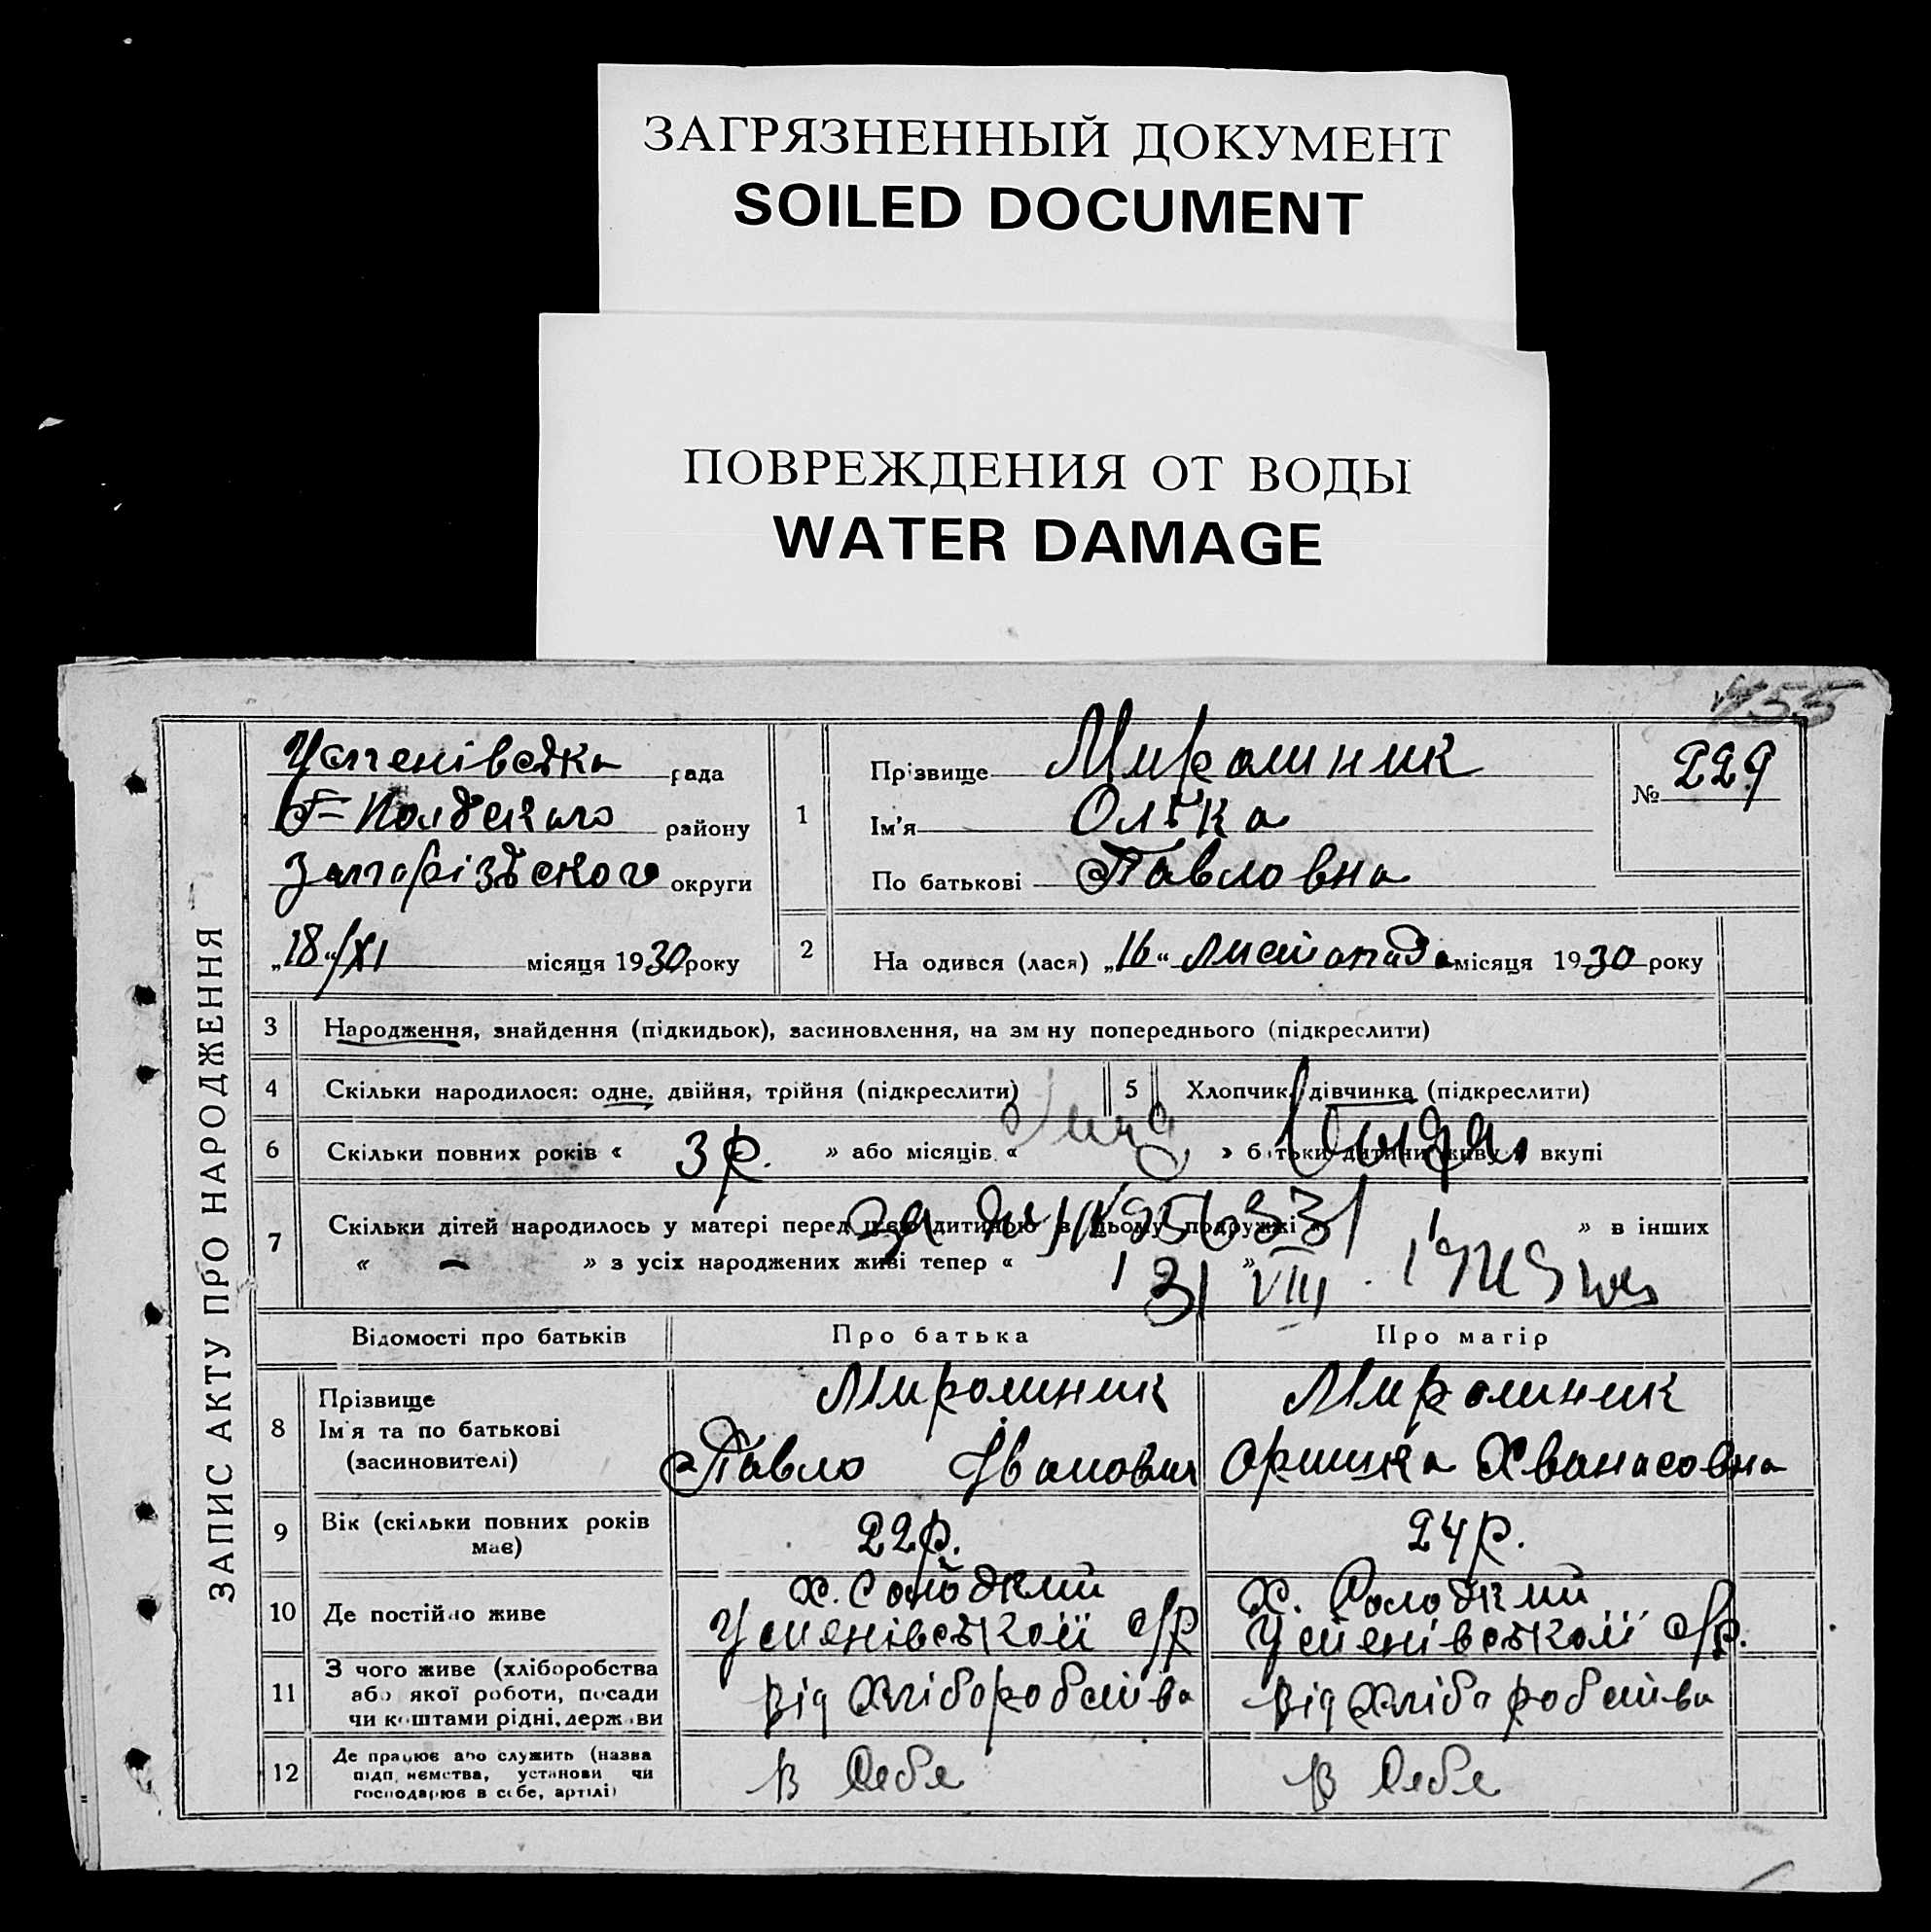 ЗАГРЯЗНЕННЫЙ ДОКУМЕНТ
SOILED DOCUMENT
ПОВРЕЖДЕНИЯ ОТ ВОДЫ
WATER DAMAGE
ЗАПИС АКТУ ПРО НАРОДЖЕННЯ
Успенівська рада
району
Запорізького округи
„18“/XI місяця 1930 року
1
Прізвище Мирошник
Ім'я Олька
По батькові Павловна
№ 229
2
На одився (лася) „16“ листопада місяця 1930 року
3 Народження, знайдення (підкидьок), засиновлення, на зм ну попереднього (підкреслити)
4 Скільки народилося: одне, двійня, трійня (підкреслити) 5 Хлопчик, дівчинка (підкреслити)
6 Скільки повних років « 3 р. » або місяців « » батьки дитини живуть вкупі
7 Скільки дітей народилось у матері перед цією дитиною в цьому подружжі « 1 » в інших
« — » з усіх народжених живі тепер « 1 »
31 VIII
Відомості про батьків Про батька Про матір
8 Прізвище
Ім'я та по батькові
(засиновителі)
Мирошник
Павло Іванович
Мирошник
Оришка Хванасовна
9 Вік (скільки повних років має) 22 р. 24 р.
10 Де постійно живе
х. Солодкий
Успенівської с/р
х. Солодкий
Успенівської с/р.
11 З чого живе (хліборобства
або якої роботи, посади
чи коштами рідні, держави
від хліборобства від хліборобства
12 Де працює або служить (назва
підп иємства, установи чи
господарює в себе, артілі)
в себе в себе